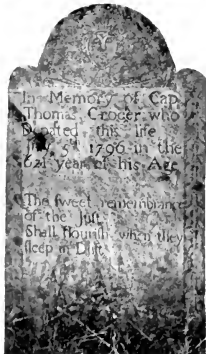 In Memory of Cap
Thomas Croger who
Departed this life
5th 1796 in the
62d year of his Age
The ſweet remembrance
of the Juſt
Shall flouriſh when they
ſleep in Duſt